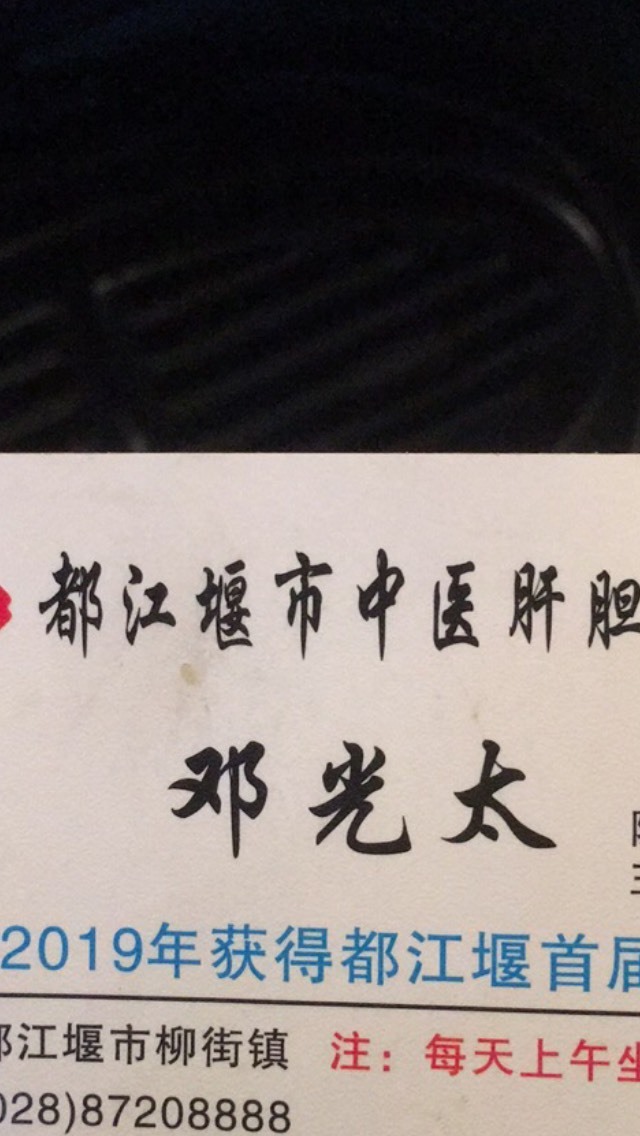 都江堰市中医肝胆
邓光太
2019年获得都江堰首届
都江堰市柳街镇 注：每天上午坐
028)87208888